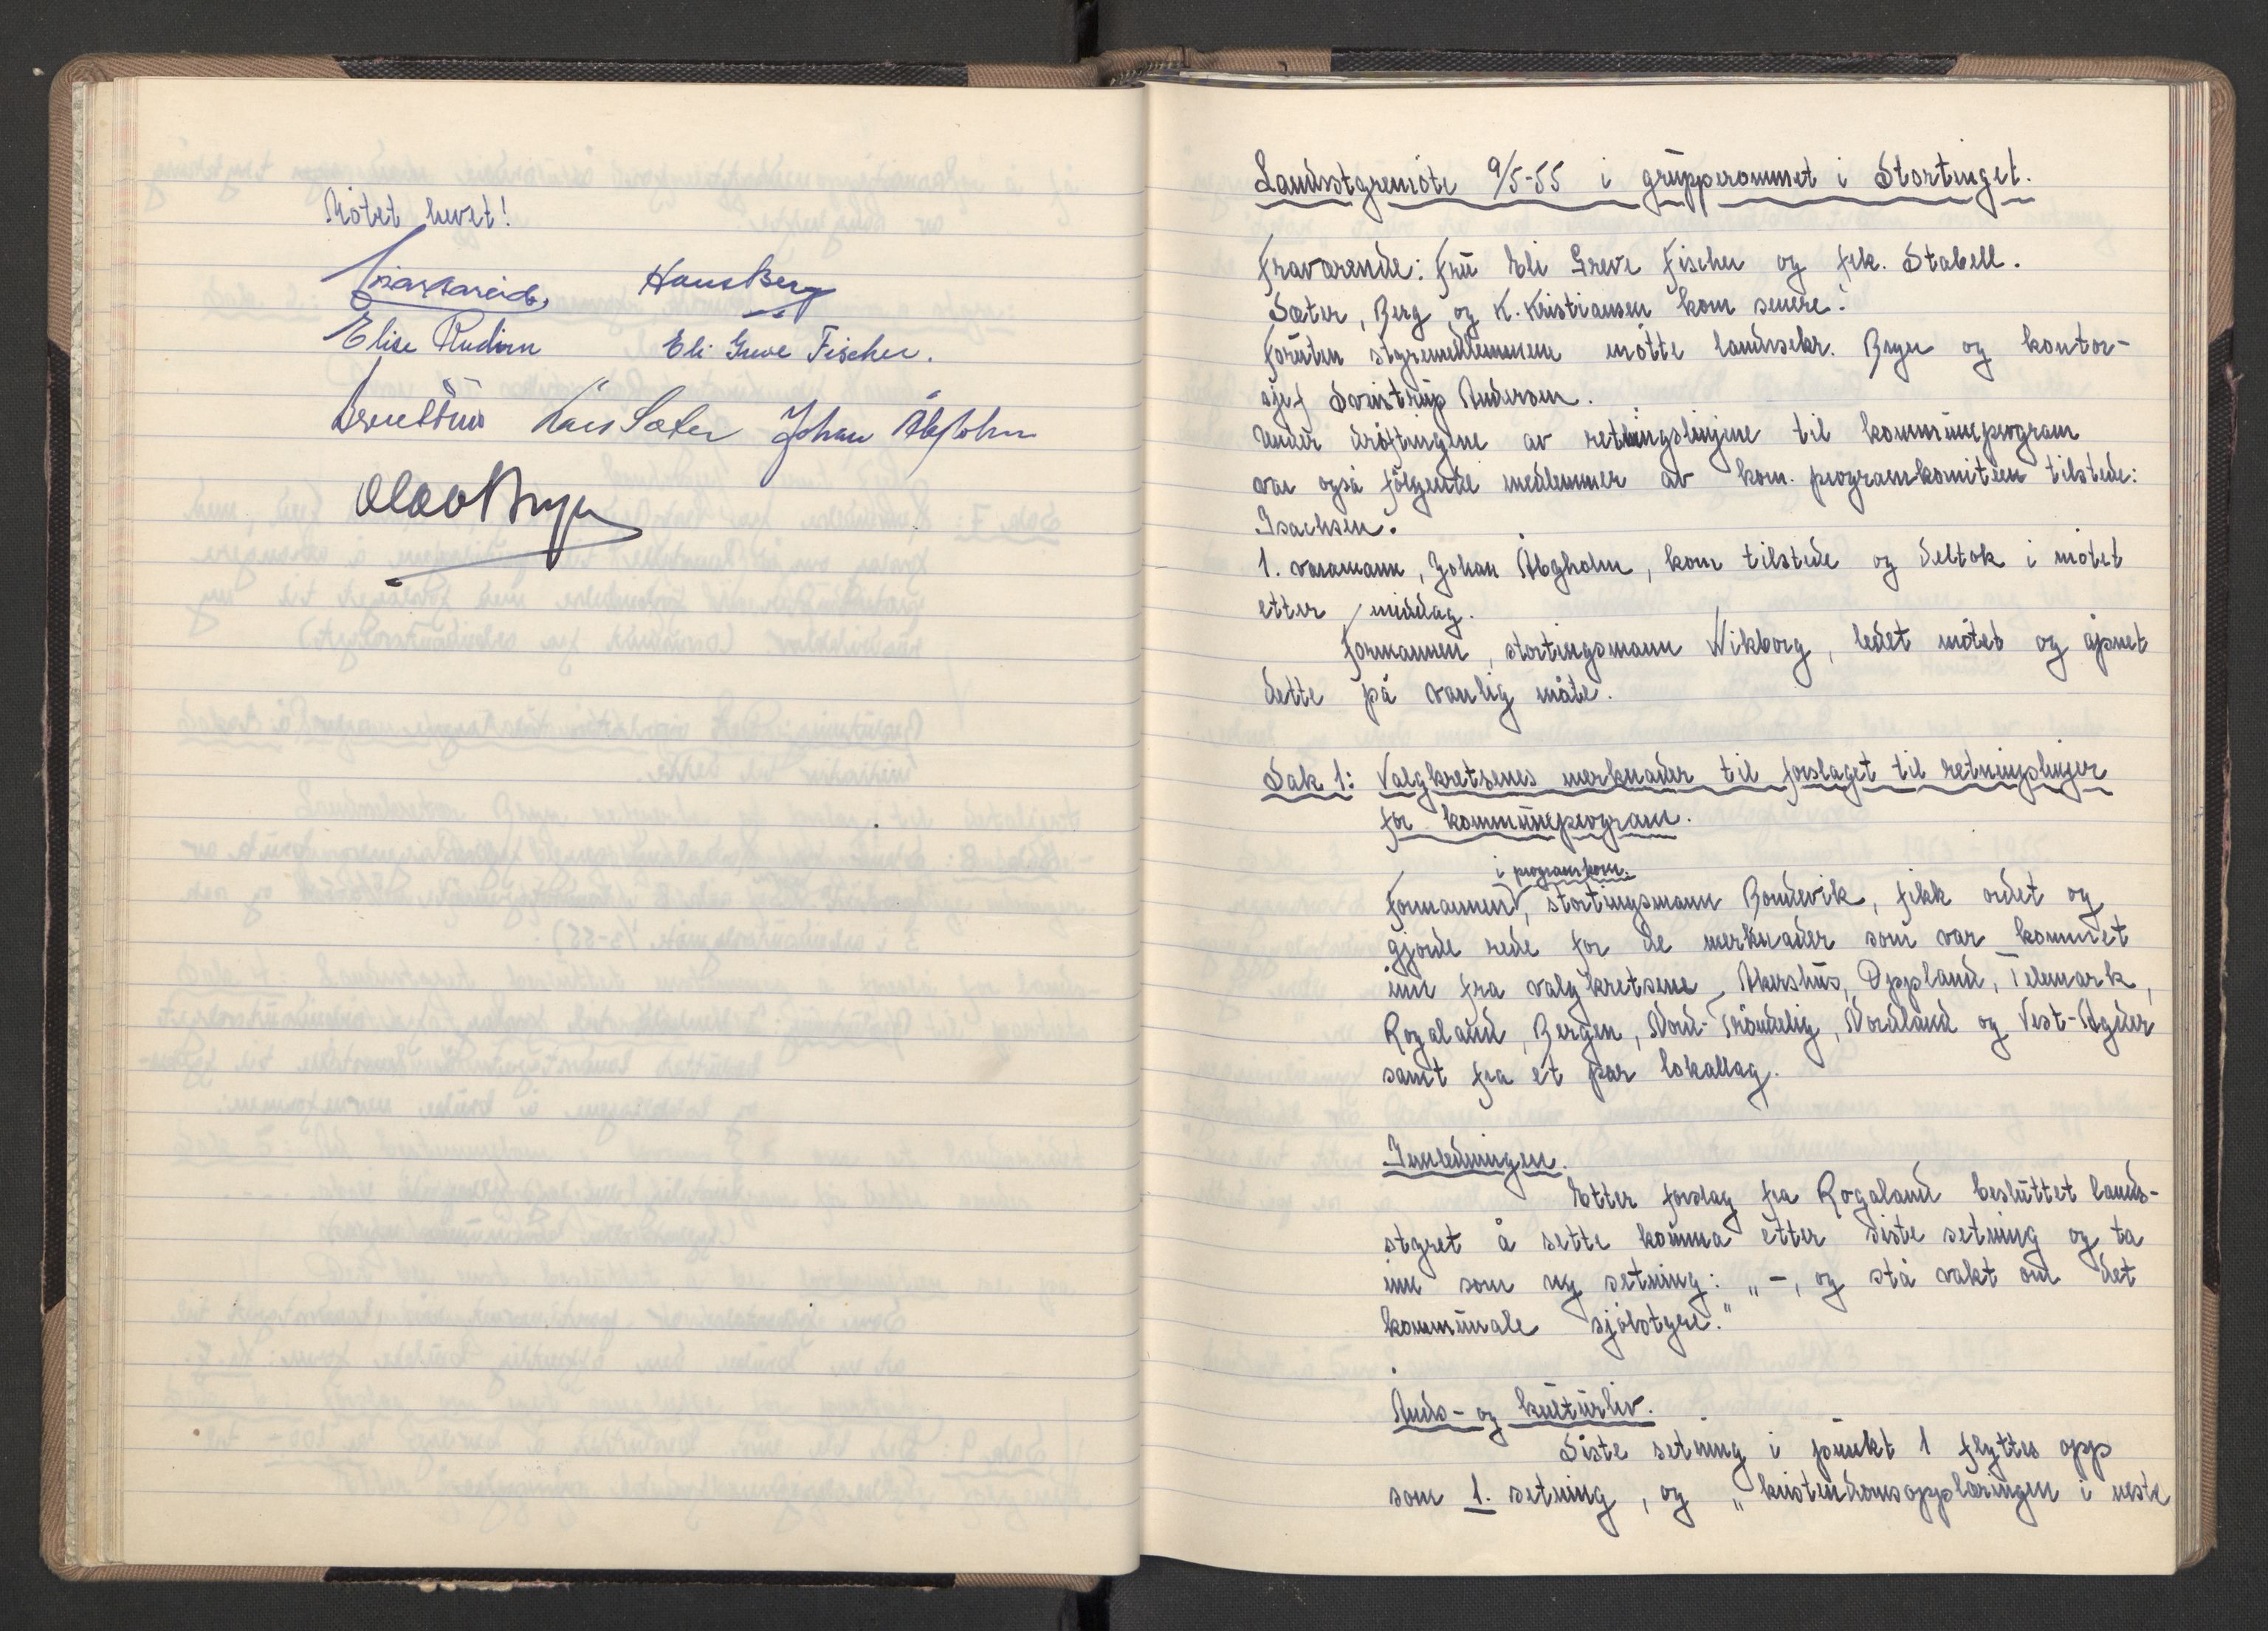 Møtet hevet!
Hans Berg
Elise Rudirn
Eli Greve Fischer.
Kåre Sæter Johan Åbgholm
Olav Bryn
Landsstyremöte 9/5-55 i grupperommet i Stortinget.
Fraværende: Fru Eli Greve Fischer og frk. Stabell.
Sæter, Berg og K. Kristiansen kom senere.
Foruten styremedlemmene mötte landssekr. Bryn og kontor-
sjef Svustrup Andersen.
Under dröftingene av retningslinjene til kommuneprogram
var også fölgende medlemmer av kom. programkomitéen tilstede:
Isachsen.
1. varamann, Johan Åbgholm, kom tilstede og deltok i mötet
etter middag.
Formannen, stortingsmann Wikborg, ledet mötet og åpnet
dette på vanlig måte.
Sak 1: Valgkretsenes merknader til forslaget til retningslinjer
for kommuneprogram.
i programkom.
Formannen, stortingsmann Bondevik, fikk ordet og
gjorde rede for de merknader som var kommet
inn fra valgkretsene Akershus, Oppland, Telemark,
Rogaland, Bergen, Nord-Tröndelag, Nordland og Vest-Agder
samt fra et par lokallag.
Innledningen.
Etter forslag fra Rogaland besluttet lands-
styret å sette komma etter siste setning og ta
inn som ny setning: „-, og stå vakt om det
kommunale sjölstyre."
Ånds- og kulturliv.
Siste setning i punkt 1 flyttes opp
som 1. setning, og „kristendomsopplæringen i neste